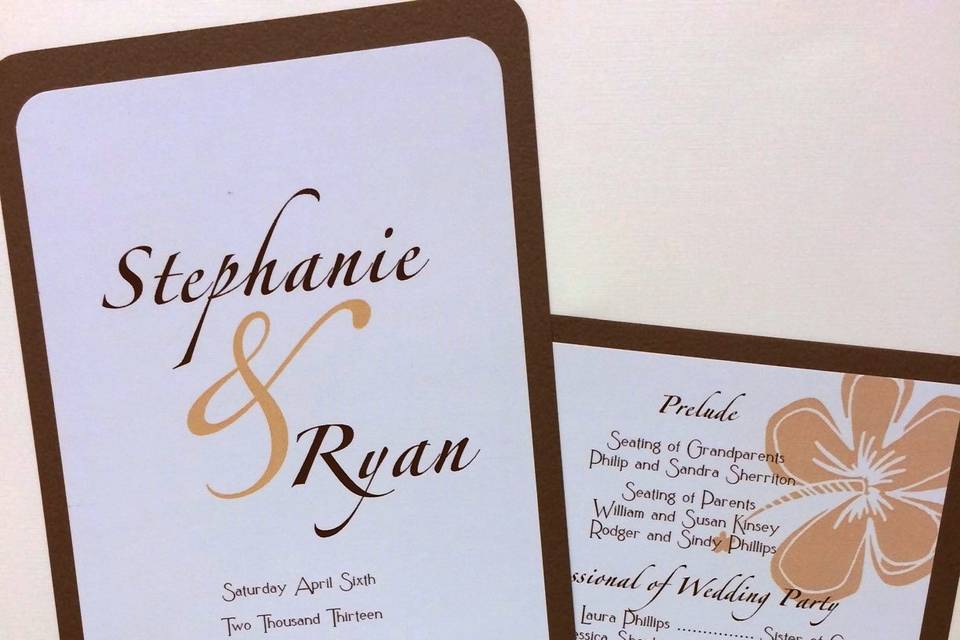 Stephanie
&
Ryan
Saturday April Sixth
Two Thousand Thirteen
Prelude
Seating of Grandparents
Philip and Sandra Sherriton
Seating of Parents
William and Susan Kinsey
Rodger and Sindy Phillips
of Wedding Party
Laura Phillips ................ Sister of